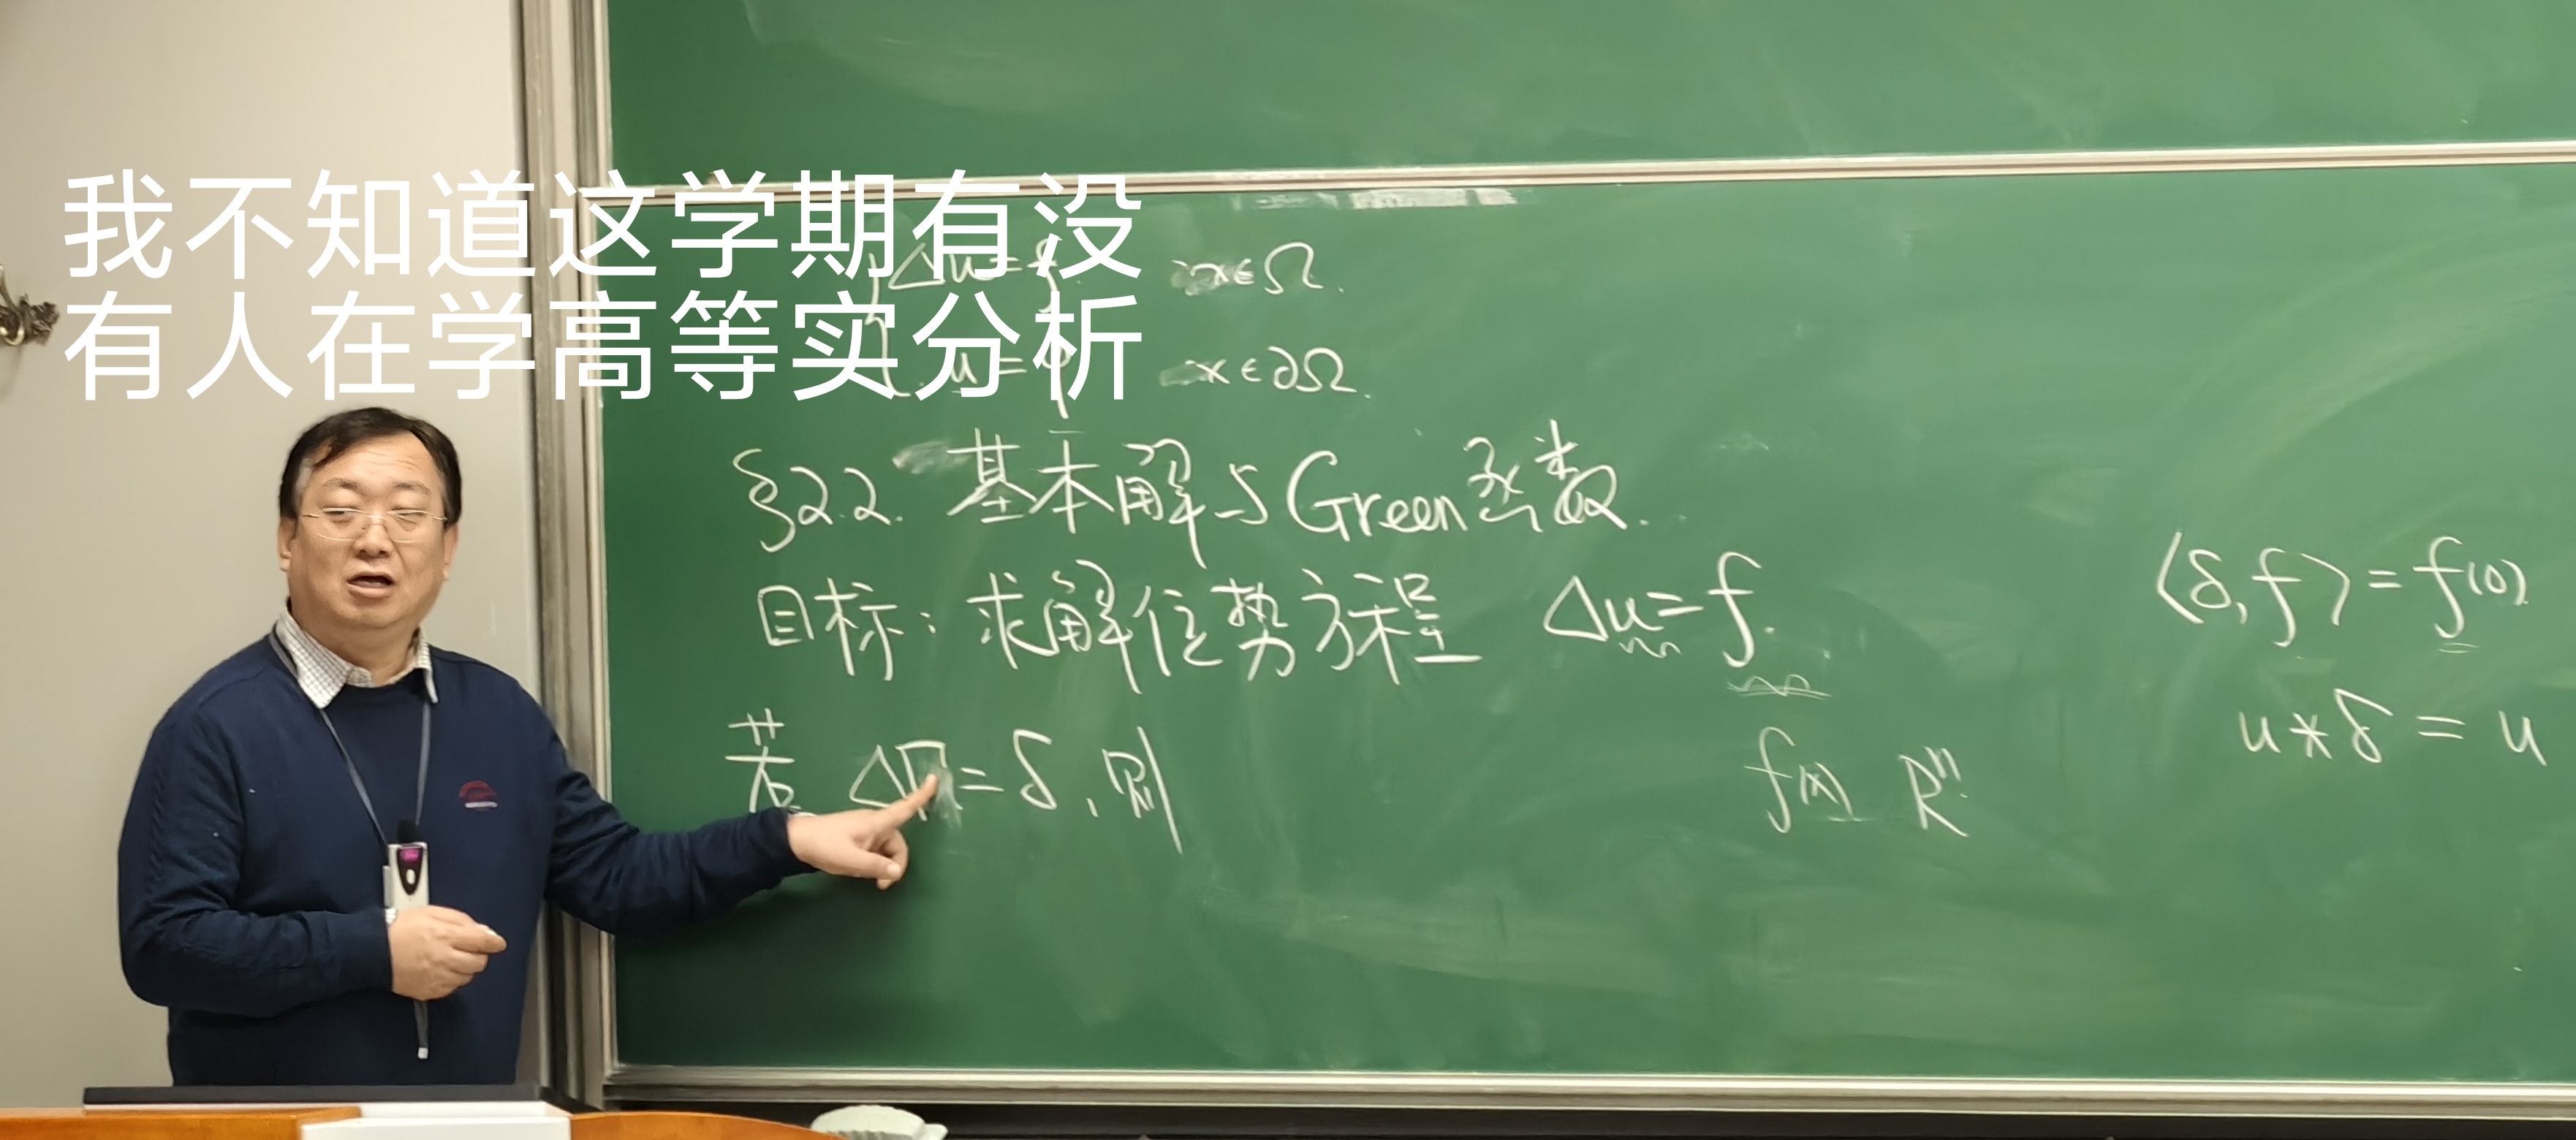 我不知道这学期有没
有人在学高等实分析
Δu=f x∈Ω.
u=φ x∈∂Ω.
§2.2. 基本解与Green函数.
目标：求解位势方程 Δu=f.
若 ΔΓ=δ, 则
f(x) Rⁿ
⟨δ,f⟩=f(0)
u*δ=u